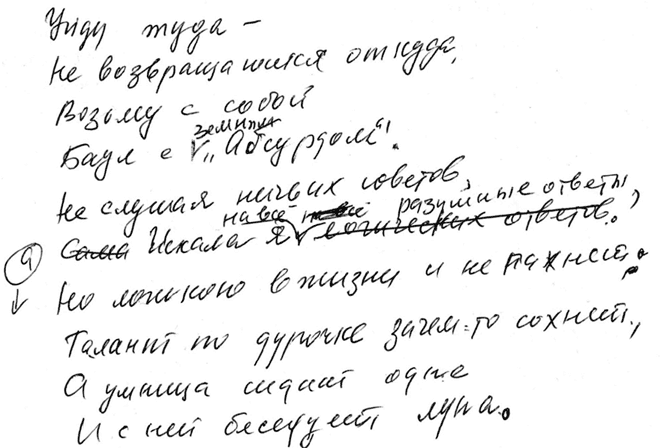 Уйду туда –
Не возвращаются откуда,
Возьму с собой
земным
Баул с V „Абсурдом".
Не слушая ничьих советов,
на всё разумные ответы,
Сама Искала я V логических ответов.
Но логикою в жизни и не пахнет.
Талант по дурочке зачем-то сохнет,
А умница сидит одна
И с ней беседует луна.